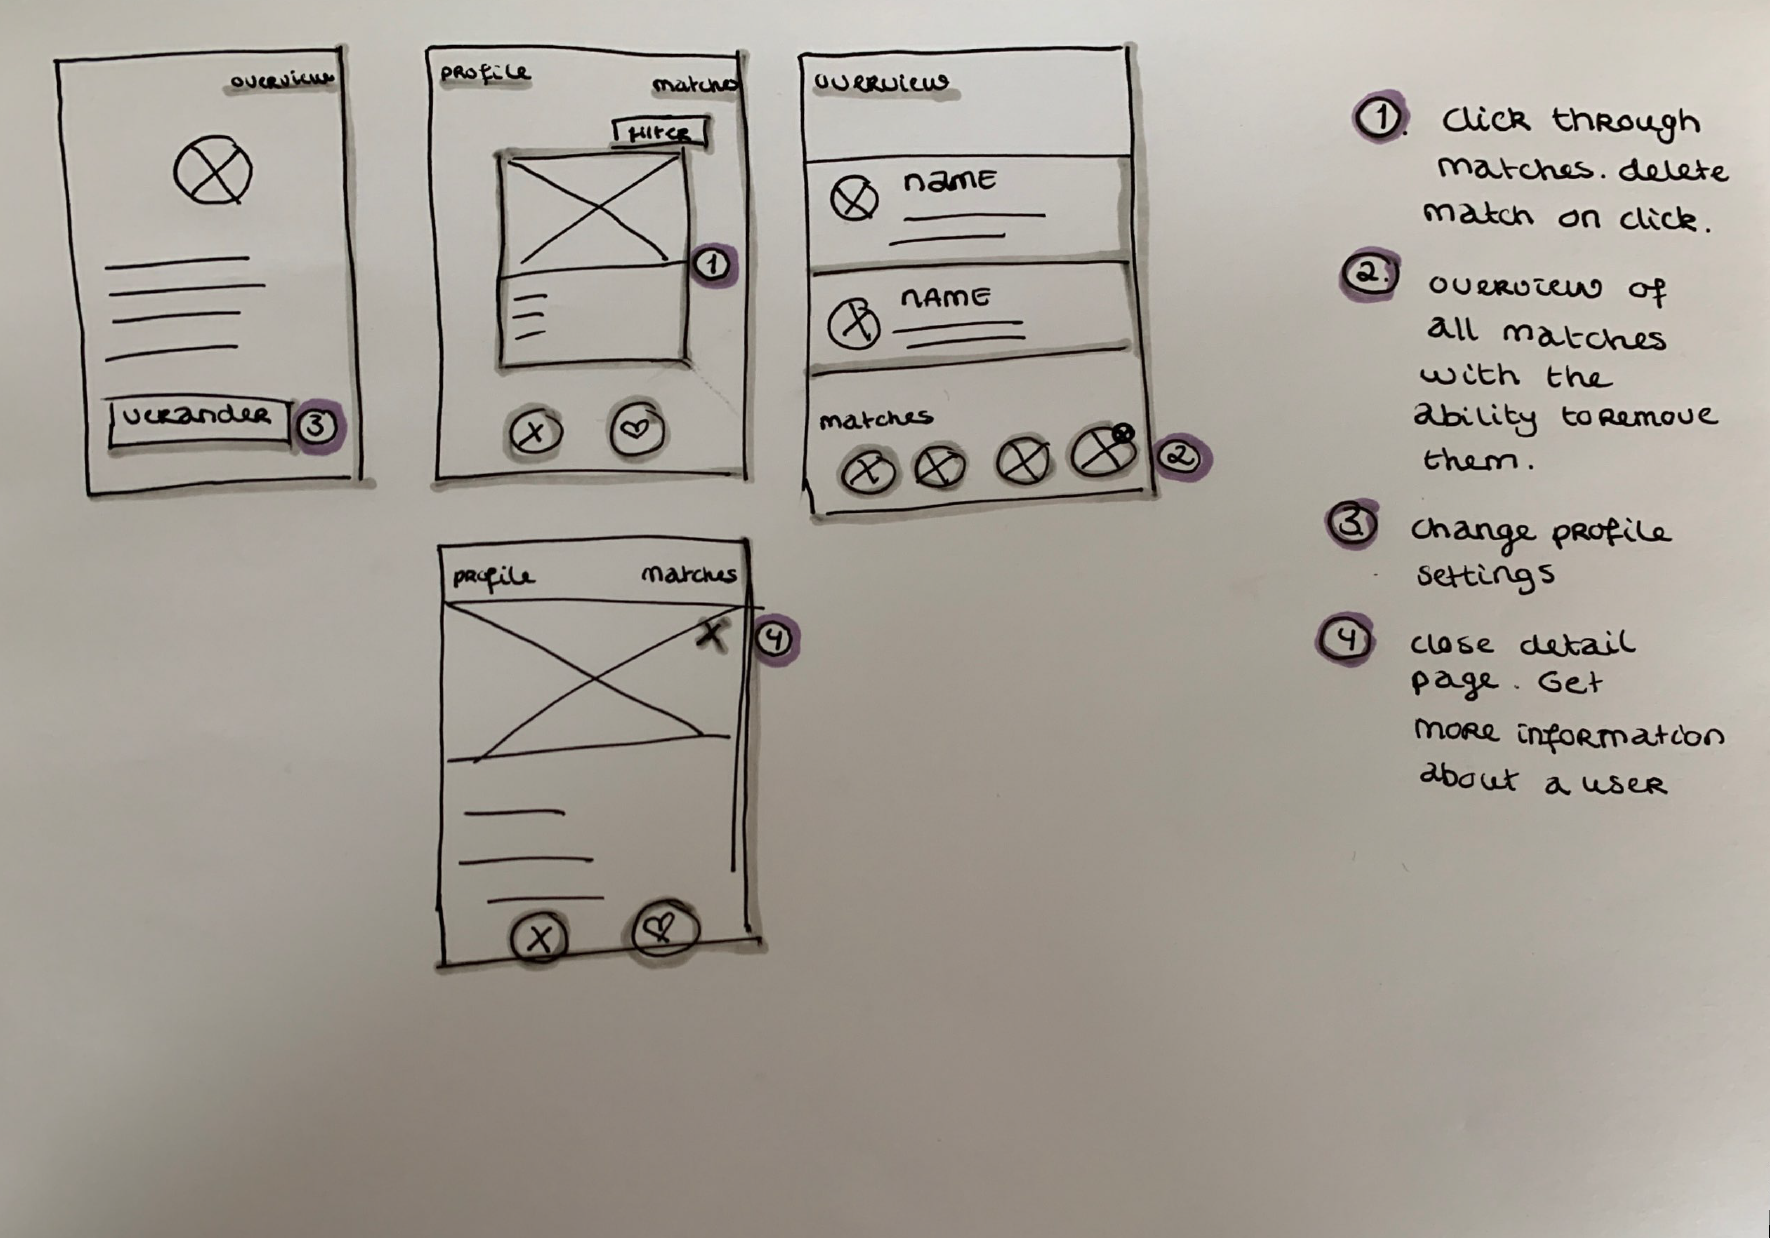 overview
verander
3
profile
matches
filter
1
X
overview
name
name
matches
2
profile
matches
X
4
X
1. click through
matches. delete
match on click.
2. overview of
all matches
with the
ability to remove
them.
3. change profile
settings
4 close detail
page. Get
more information
about a user